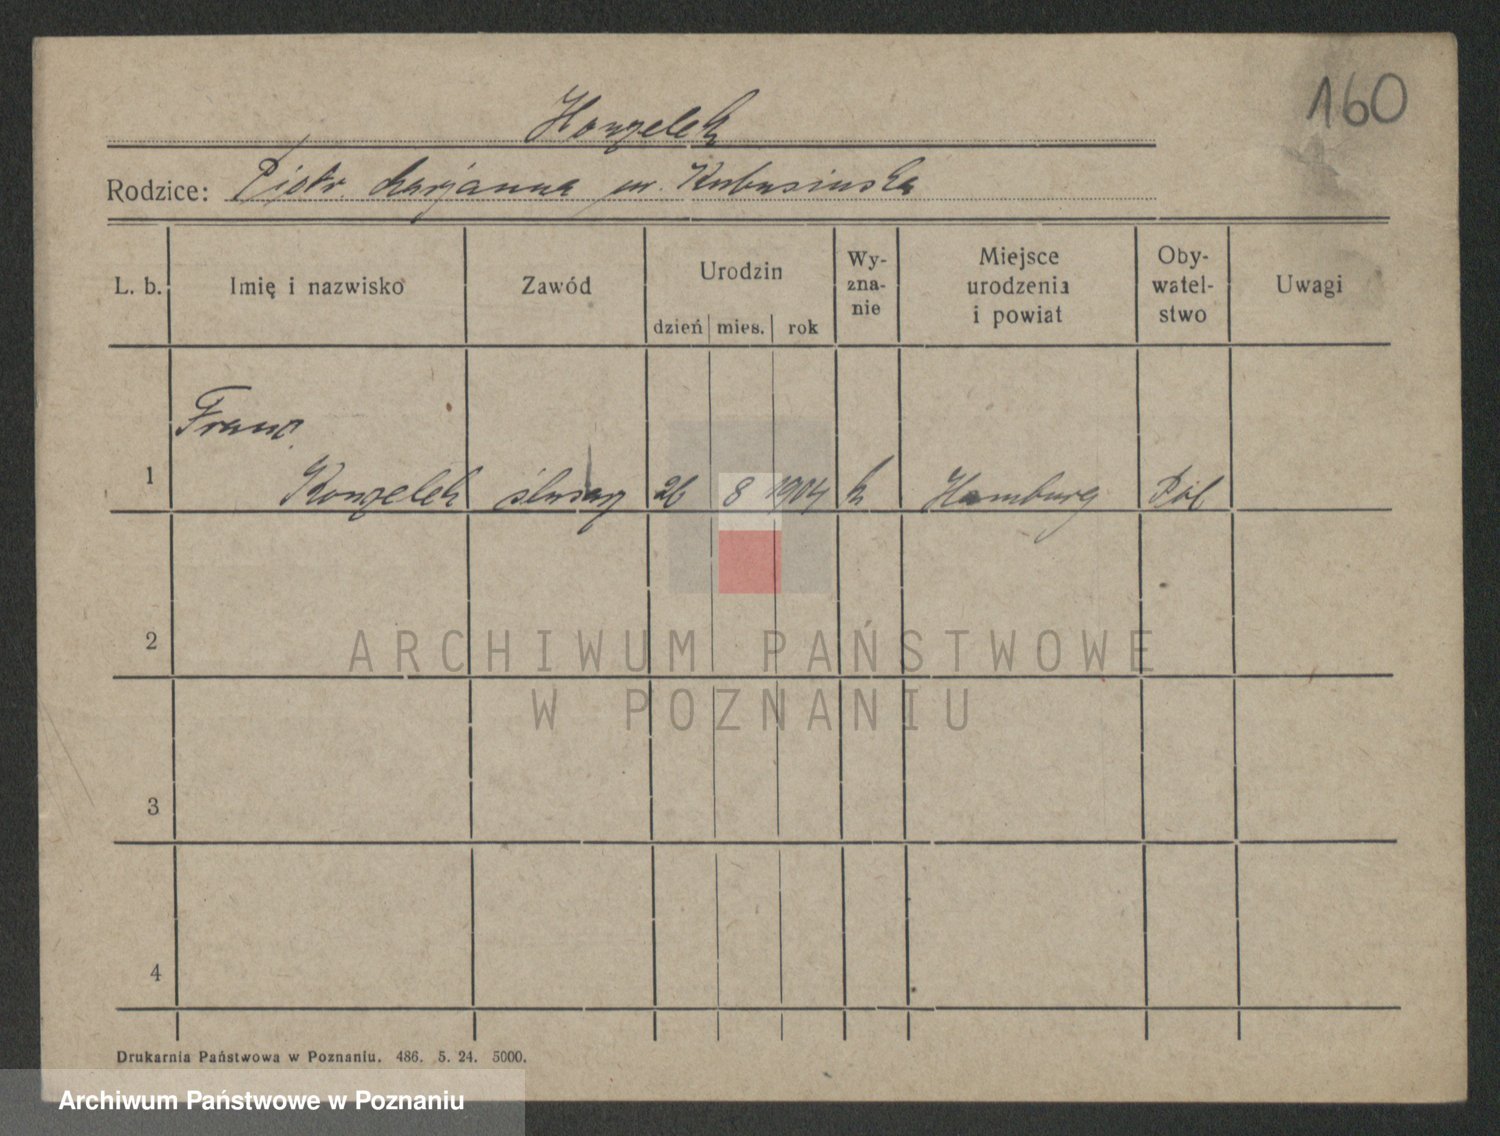 160
Konzelek
Rodzice: Piotr. Marjanna ur. Kubasinska
L. b. Imię i nazwisko Zawód Urodzin dzień mies. rok Wy-zna-nie Miejsce urodzenia i powiat Oby-watel-stwo Uwagi
Franc.
1 Konzelek ślusarz 26 8 1904 k Hamburg Pol
2
ARCHIWUM PAŃSTWOWE
W POZNANIU
3
4
Drukarnia Państwowa w Poznaniu. 486. 5. 24. 5000.
Archiwum Państwowe w Poznaniu